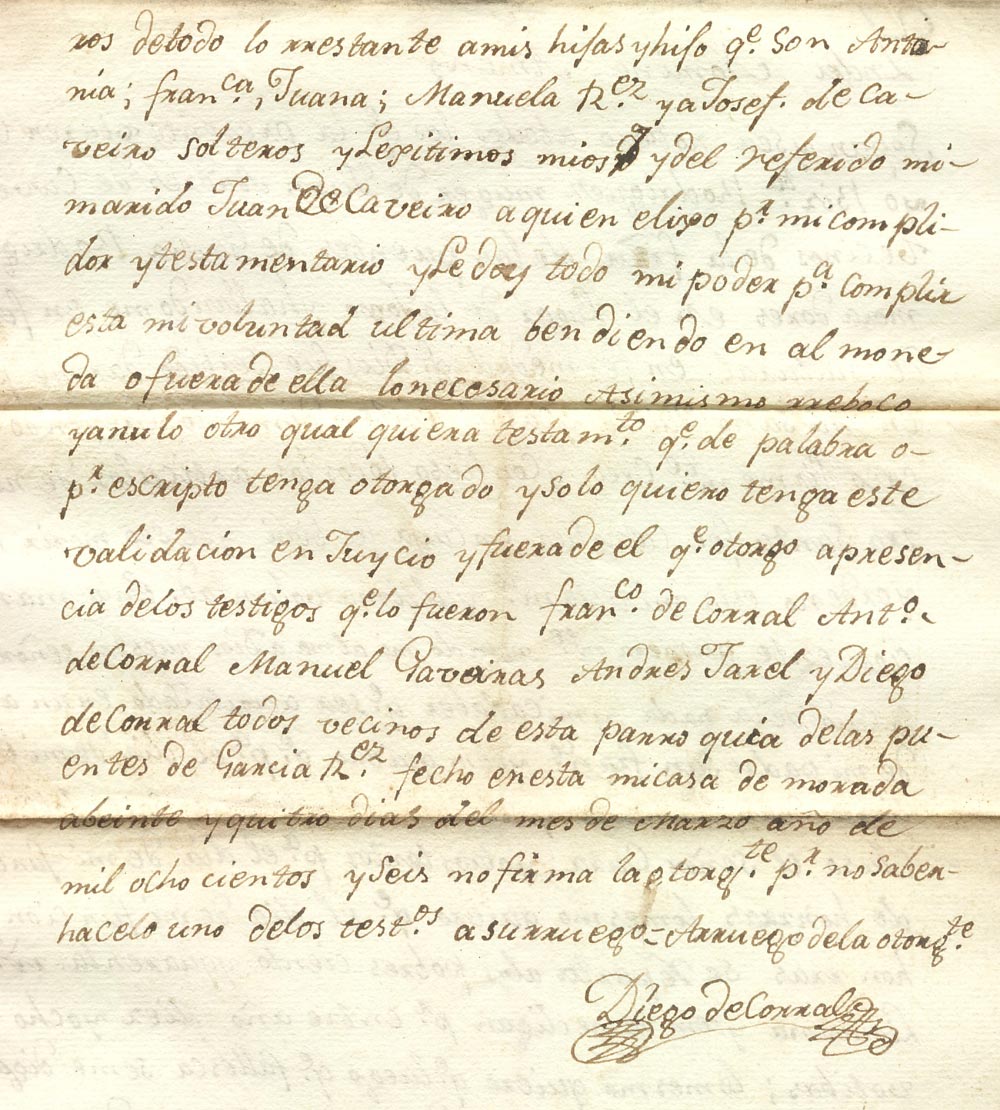 ros detodo lo rrestante amis hisas yhiso qe. son Anto-
nia; franca., Juana; Manuela Rez. ya Josef. de Ca-
veiro solteros y Lexitimos mios y del referido mi-
marido Juan de Caveiro aquien elixo pr. mi compli-
dor y testamentario y Le doy todo mi poder pa. complir
esta mi voluntad ultima bendiendo en al mone-
da o fuera de ella lo necesario Asimismo rreboco
yanulo otro qual quiera testamto. qe. de palabra o-
pr. escripto tenga otorgado y solo quiero tenga este
validacion en Juycio y fuera de el qe. otorgo apresen-
cia delos testigos qe. lo fueron franco. de Corral Anto.
de Corral Manuel Gaveiras Andres Jarel y Diego
de Corral todos vecinos de esta parro quia delas pu-
entes de Garcia Rez. fecho en esta mi casa de morada
abeinte yquitro dias del mes de Marzo año de
mil ocho cientos y seis no firma la otorgte. pr. no saber-
hacelo uno delos testos. asurruego-Arruego de la otorgte.
Diego de Corral